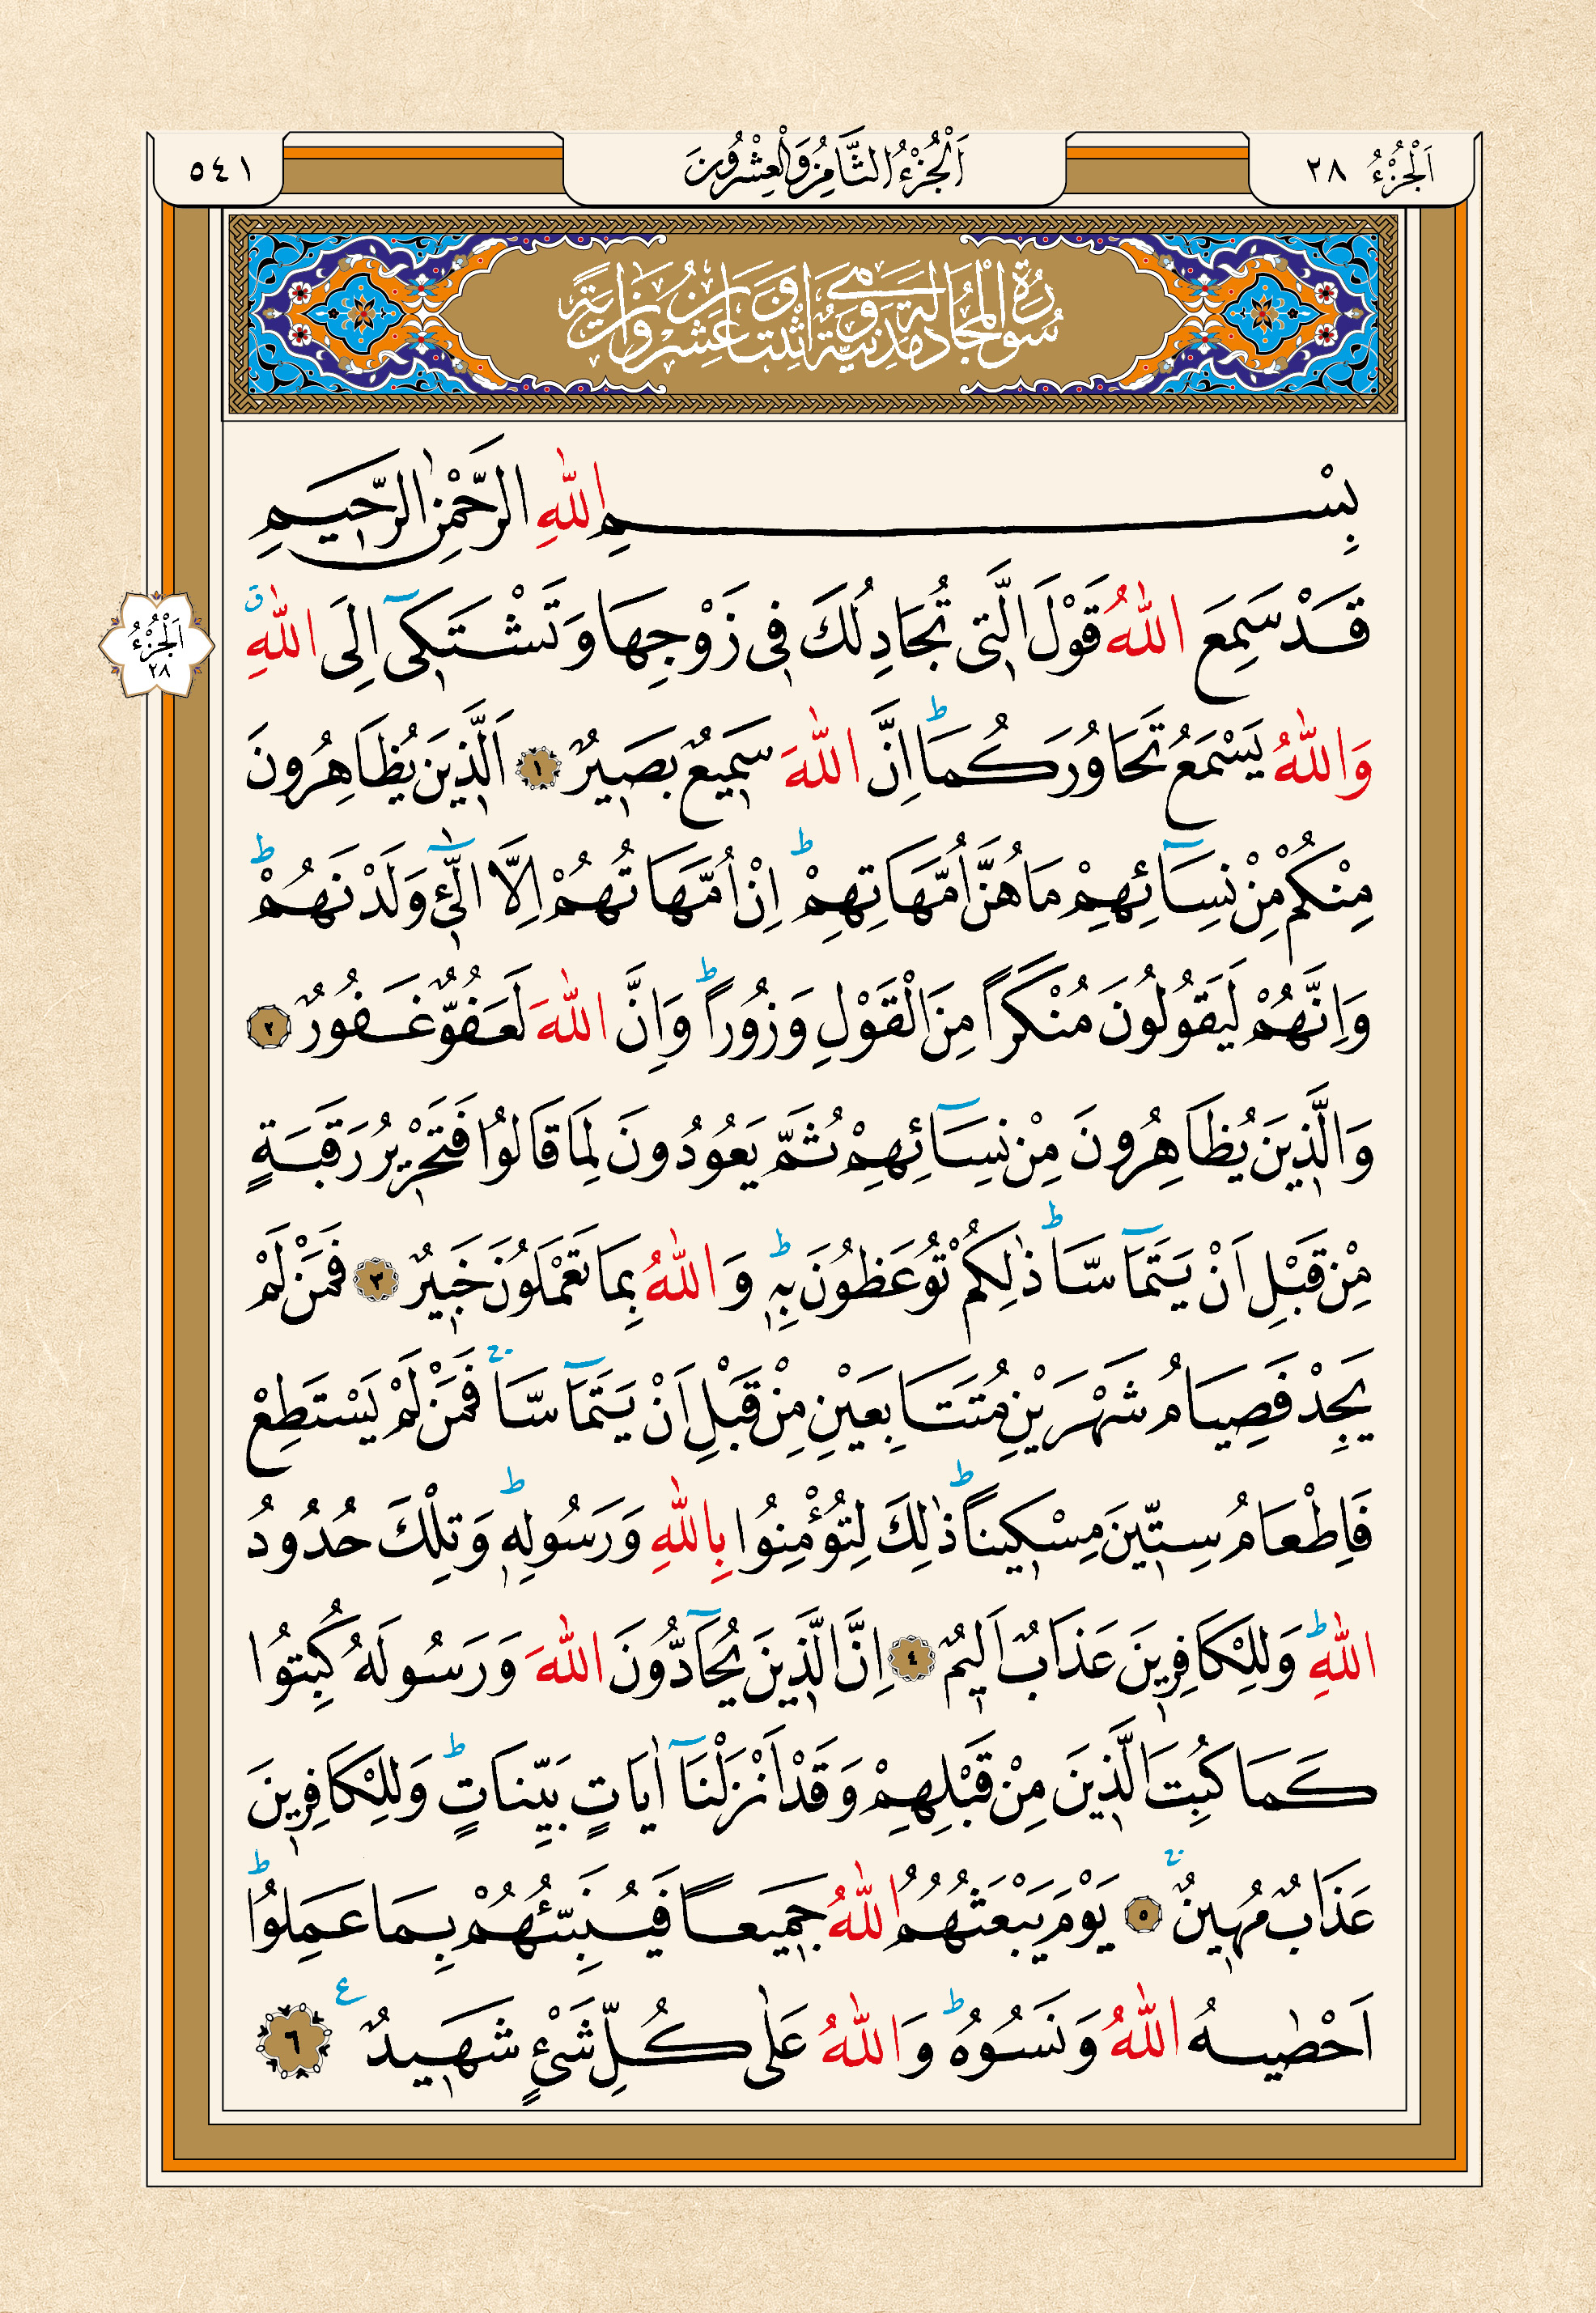 اَلْجُزْءُ ٢٨
اَلْجُزْءُ الثَّامِنُ وَالْعِشْرُونَ
٥٤١
سُورَةُ الْمُجَادَلَةِ مَدَنِيَّةٌ وَهِيَ اثْنَتَانِ وَعِشْرُونَ اٰيَةً
بِسْمِ اللّٰهِ الرَّحْمٰنِ الرَّحِيمِ
قَدْ سَمِعَ اللّٰهُ قَوْلَ الَّتِي تُجَادِلُكَ فِي زَوْجِهَا وَتَشْتَكِٓي اِلَى اللّٰهِۗ
وَاللّٰهُ يَسْمَعُ تَحَاوُرَكُمَاۜ اِنَّ اللّٰهَ سَمِيعٌ بَصِيرٌ ﴿١﴾ اَلَّذِينَ يُظَاهِرُونَ
مِنْكُمْ مِنْ نِسَٓائِهِمْ مَا هُنَّ اُمَّهَاتِهِمْۜ اِنْ اُمَّهَاتُهُمْ اِلَّا الّٰٓـِٔي وَلَدْنَهُمْۜ
وَاِنَّهُمْ لَيَقُولُونَ مُنْكَراً مِنَ الْقَوْلِ وَزُوراًۜ وَاِنَّ اللّٰهَ لَعَفُوٌّ غَفُورٌ ﴿٢﴾
وَالَّذِينَ يُظَاهِرُونَ مِنْ نِسَٓائِهِمْ ثُمَّ يَعُودُونَ لِمَا قَالُوا فَتَحْرِيرُ رَقَبَةٍ
مِنْ قَبْلِ اَنْ يَتَمَٓاسَّاۜ ذٰلِكُمْ تُوعَظُونَ بِهِۜ وَاللّٰهُ بِمَا تَعْمَلُونَ خَبِيرٌ ﴿٣﴾ فَمَنْ لَمْ
يَجِدْ فَصِيَامُ شَهْرَيْنِ مُتَتَابِعَيْنِ مِنْ قَبْلِ اَنْ يَتَمَٓاسَّاۚ فَمَنْ لَمْ يَسْتَطِعْ
فَاِطْعَامُ سِتِّينَ مِسْكِيناًۜ ذٰلِكَ لِتُؤْمِنُوا بِاللّٰهِ وَرَسُولِهِۜ وَتِلْكَ حُدُودُ
اللّٰهِۜ وَلِلْكَافِرِينَ عَذَابٌ اَلِيمٌ ﴿٤﴾ اِنَّ الَّذِينَ يُحَٓادُّونَ اللّٰهَ وَرَسُولَهُ كُبِتُوا
كَمَا كُبِتَ الَّذِينَ مِنْ قَبْلِهِمْ وَقَدْ اَنْزَلْنَٓا اٰيَاتٍ بَيِّنَاتٍۜ وَلِلْكَافِرِينَ
عَذَابٌ مُهِينٌۚ ﴿٥﴾ يَوْمَ يَبْعَثُهُمُ اللّٰهُ جَمِيعاً فَيُنَبِّئُهُمْ بِمَا عَمِلُواۜ
اَحْصٰيهُ اللّٰهُ وَنَسُوهُۜ وَاللّٰهُ عَلٰى كُلِّ شَيْءٍ شَهِيدٌ ع ﴿٦﴾
اَلْجُزْءُ
٢٨